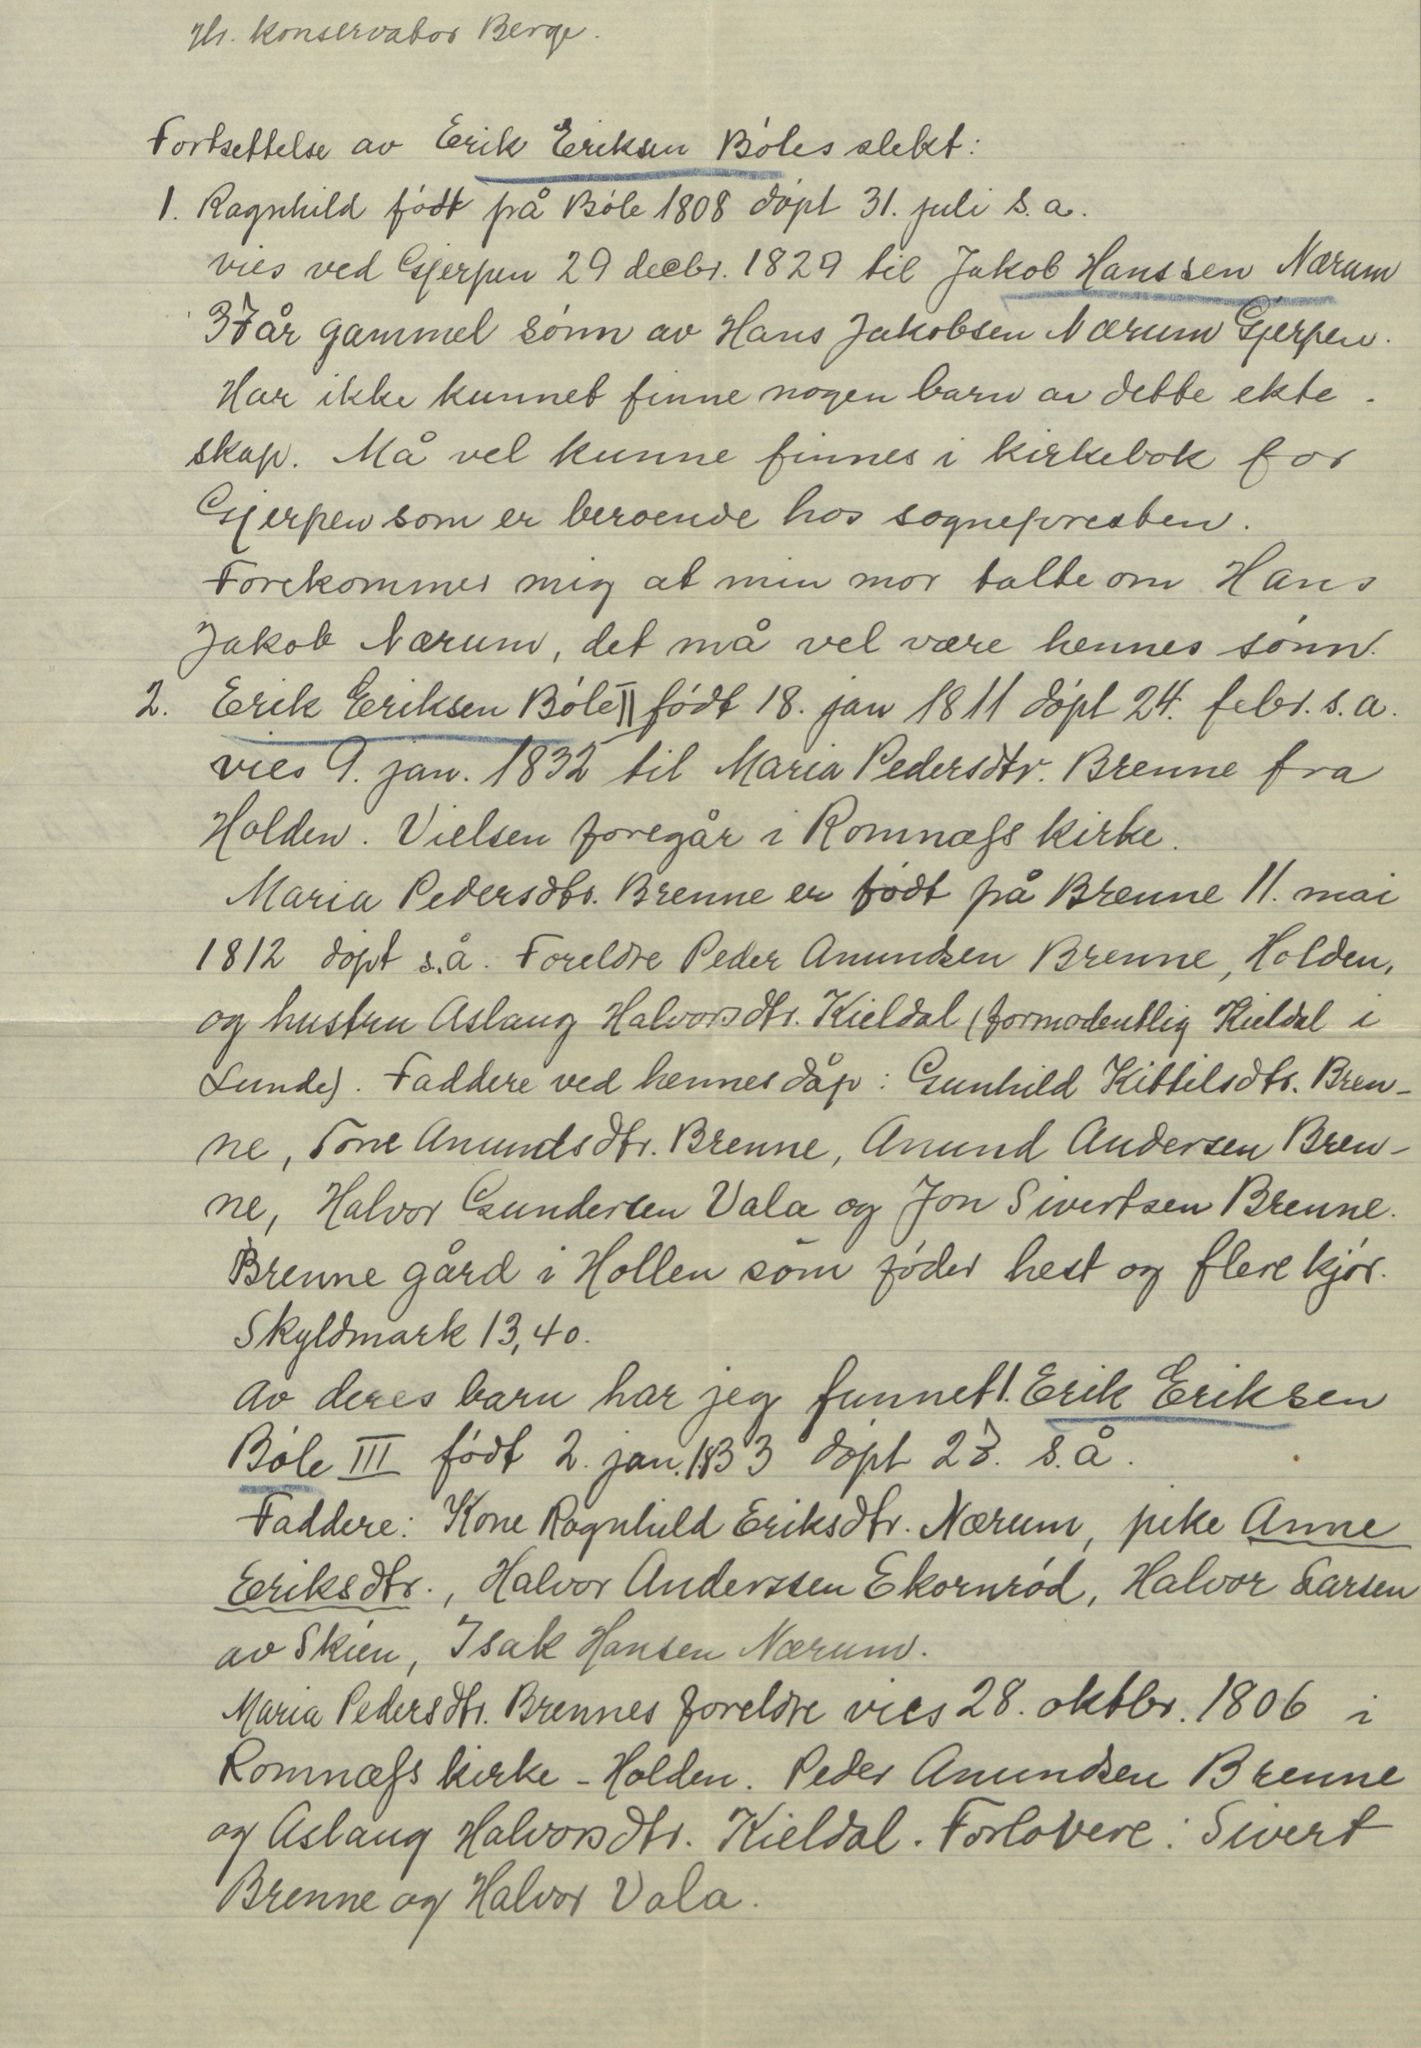 Hr. Konservator Berge.
Fortsettelse av Erik Eriksen Bøles slekt:
1. Ragnhild født på Bøle 1808 døpt 31. juli s.a.
vies ved Gjerpen 29 decbr. 1829 til Jakob Hanssen Nærum
37 år gammel sønn av Hans Jakobsen Nærum Gjerpen.
Har ikke kunnet finne nogen barn av dette ekte-
skap. Må vel kunne finnes i kirkebok for
Gjerpen som er beroende hos sognepresten.
Forekommer mig at min mor talte om Hans
Jakob Nærum, det må vel være hennes sønn.
2. Erik Eriksen Bøle II født 18. jan 1811 døpt 24. febr. s.a.
vies 9. jan. 1832 til Maria Pedersdtr. Brenne fra
Holden. Vielsen foregår i Romnæfs kirke.
Maria Pedersdtr. Brenne er født på Brenne 11. mai
1812 døpt s.å. Foreldre Peder Anundsen Brenne, Holden,
og hustru Aslaug Halvorsdtr. Kieldal (formodentlig Kieldal i
Lunde). Faddere ved hennes dåp: Gunhild Kittilsdtr. Bren-
ne, Tone Anundsdtr. Brenne, Anund Andersen Bren-
ne, Halvor Gundersen Vala og Jon Sivertsen Brenne.
Brenne gård i Hollen som føder hest og flere kjør.
Skyldmark 13,40.
Av deres barn har jeg funnet 1. Erik Eriksen
Bøle III født 2. jan. 1833 døpt 27. s.å.
Faddere: Kone Ragnhild Eriksdtr. Nærum, pike Anne
Eriksdtr., Halvor Anderssen Ekornrød, Halvor Larsen
av Skien, Isak Hansen Nærum.
Maria Pedersdtr. Brennes foreldre vies 28. oktbr. 1806 i
Romnæfs kirke - Holden. Peder Anundsen Brenne
og Aslaug Halvorsdtr. Kieldal. Forlovere: Sivert
Brenne og Halvor Vala.